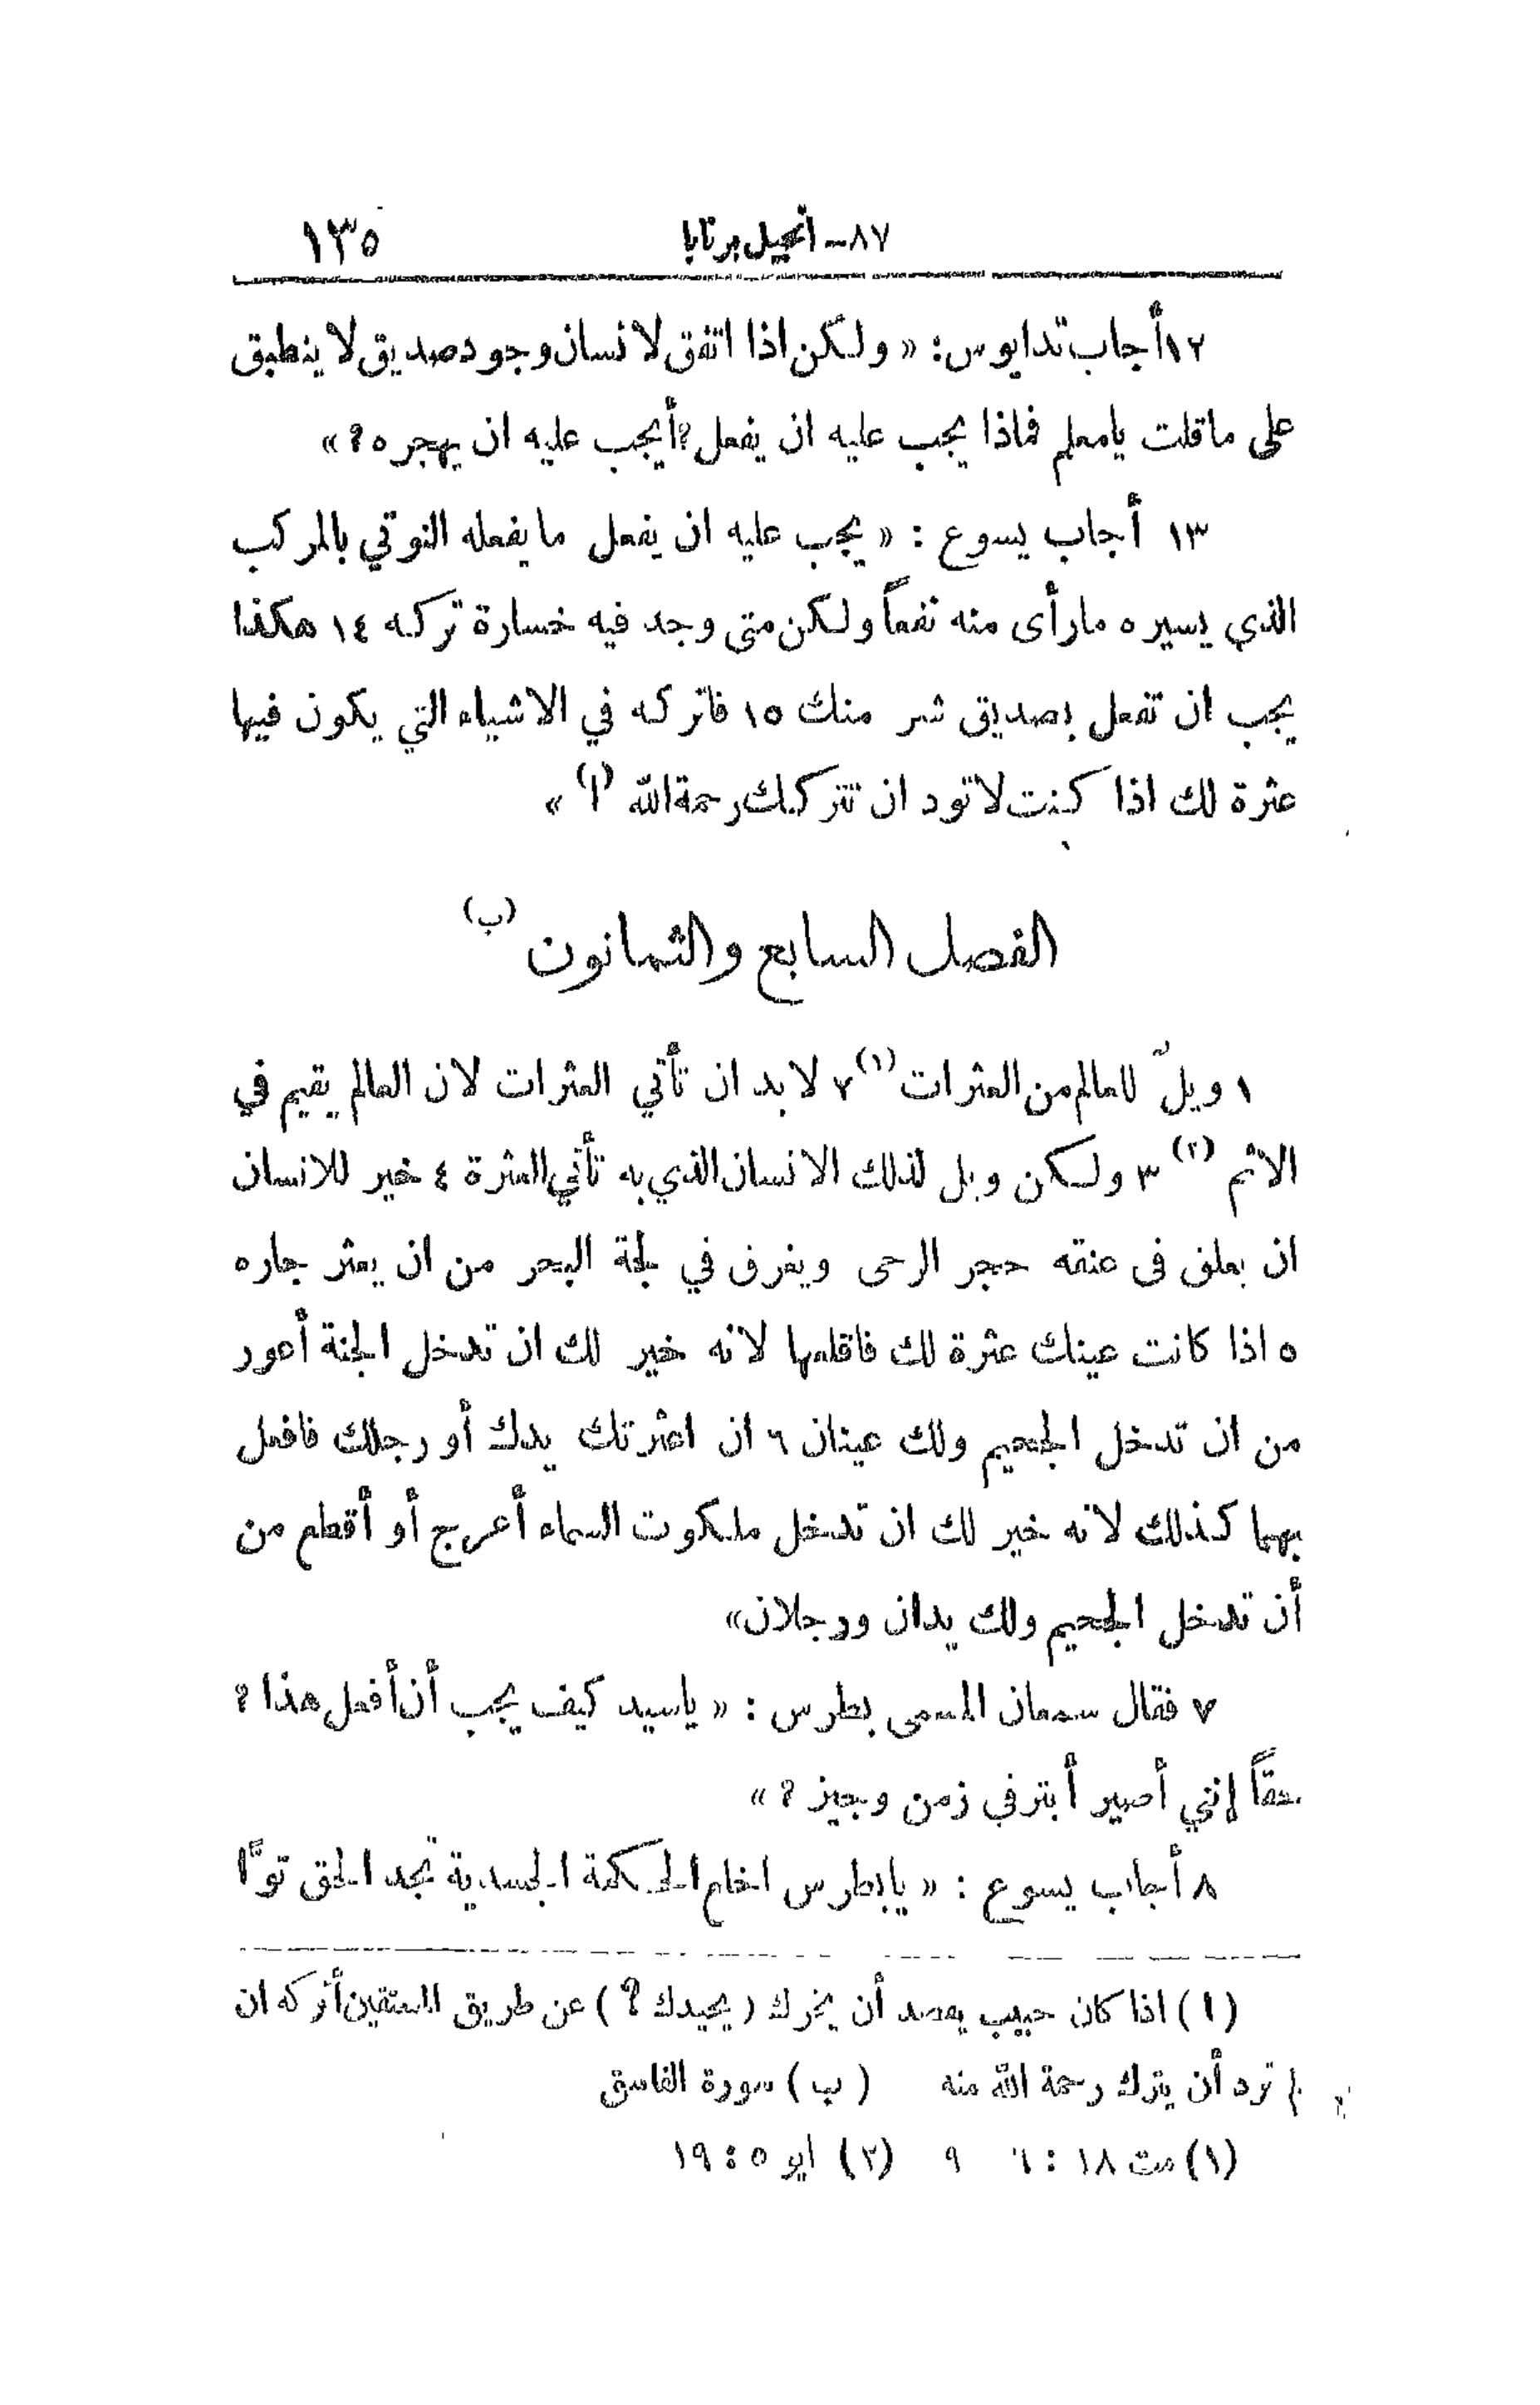 ٨٧ - انجيل برنابا ١٣٥
١٢ أجاب تداوس: « ولكن اذا اتفق لانسان وجود صديق لا ينطبق
على ما قلت يا معلم فماذا يجب عليه ان يفعل ? أيجب عليه ان يهجره ? »
١٣ أجاب يسوع : « يجب عليه ان يفعل ما يفعله النوتي بالمركب
الذي يسيره ما رأى منه نفعاً ولكن متى وجد فيه خسارة تركه ١٤ هكذا
يجب ان تفعل بصديق شر منك ١٥ فاتركه في الاشياء التي يكون فيها
عثرة لك اذا كنت لا تود ان تتركك رحمة الله (ا) »
الفصل السابع والثمانون (ب)
١ ويلٌ للعالم من العثرات (١) ٢ لا بد ان تأتي العثرات لان العالم يقيم في
الاثم (٢) ٣ ولكن ويل لذلك الانسان الذي به تأتي العثرة ٤ خير للانسان
ان يعلق فى عنقه حجر الرحى ويغرق في لجة البحر من ان يعثر جاره
٥ اذا كانت عينك عثرة لك فاقلعها لانه خير لك ان تدخل الجنة أعور
من ان تدخل الجحيم ولك عينان ٦ ان اعثرتك يدك أو رجلك فافعل
بهما كذلك لانه خير لك ان تدخل ملكوت السماء أعرج أو أقطع من
أن تدخل الجحيم ولك يدان ورجلان»
٧ فقال سمعان المسمى بطرس : « ياسيد كيف يجب أن أفعل هذا ?
حقاً إنني أصير أبتر في زمن وجيز ? »
٨ أجاب يسوع : « يا بطرس اخلع الحكمة الجسدية تجد الحق توًّا
(ا) اذا كان حبيب يقصد أن يخرك (يحيدك ?) عن طريق المستقين أتركه ان
ترد أن يترك رحمة الله منه (ب) سورة الفاسق
(١) مت ١٨ : ٦ ٩ (٢) ايو ٥ : ١٩